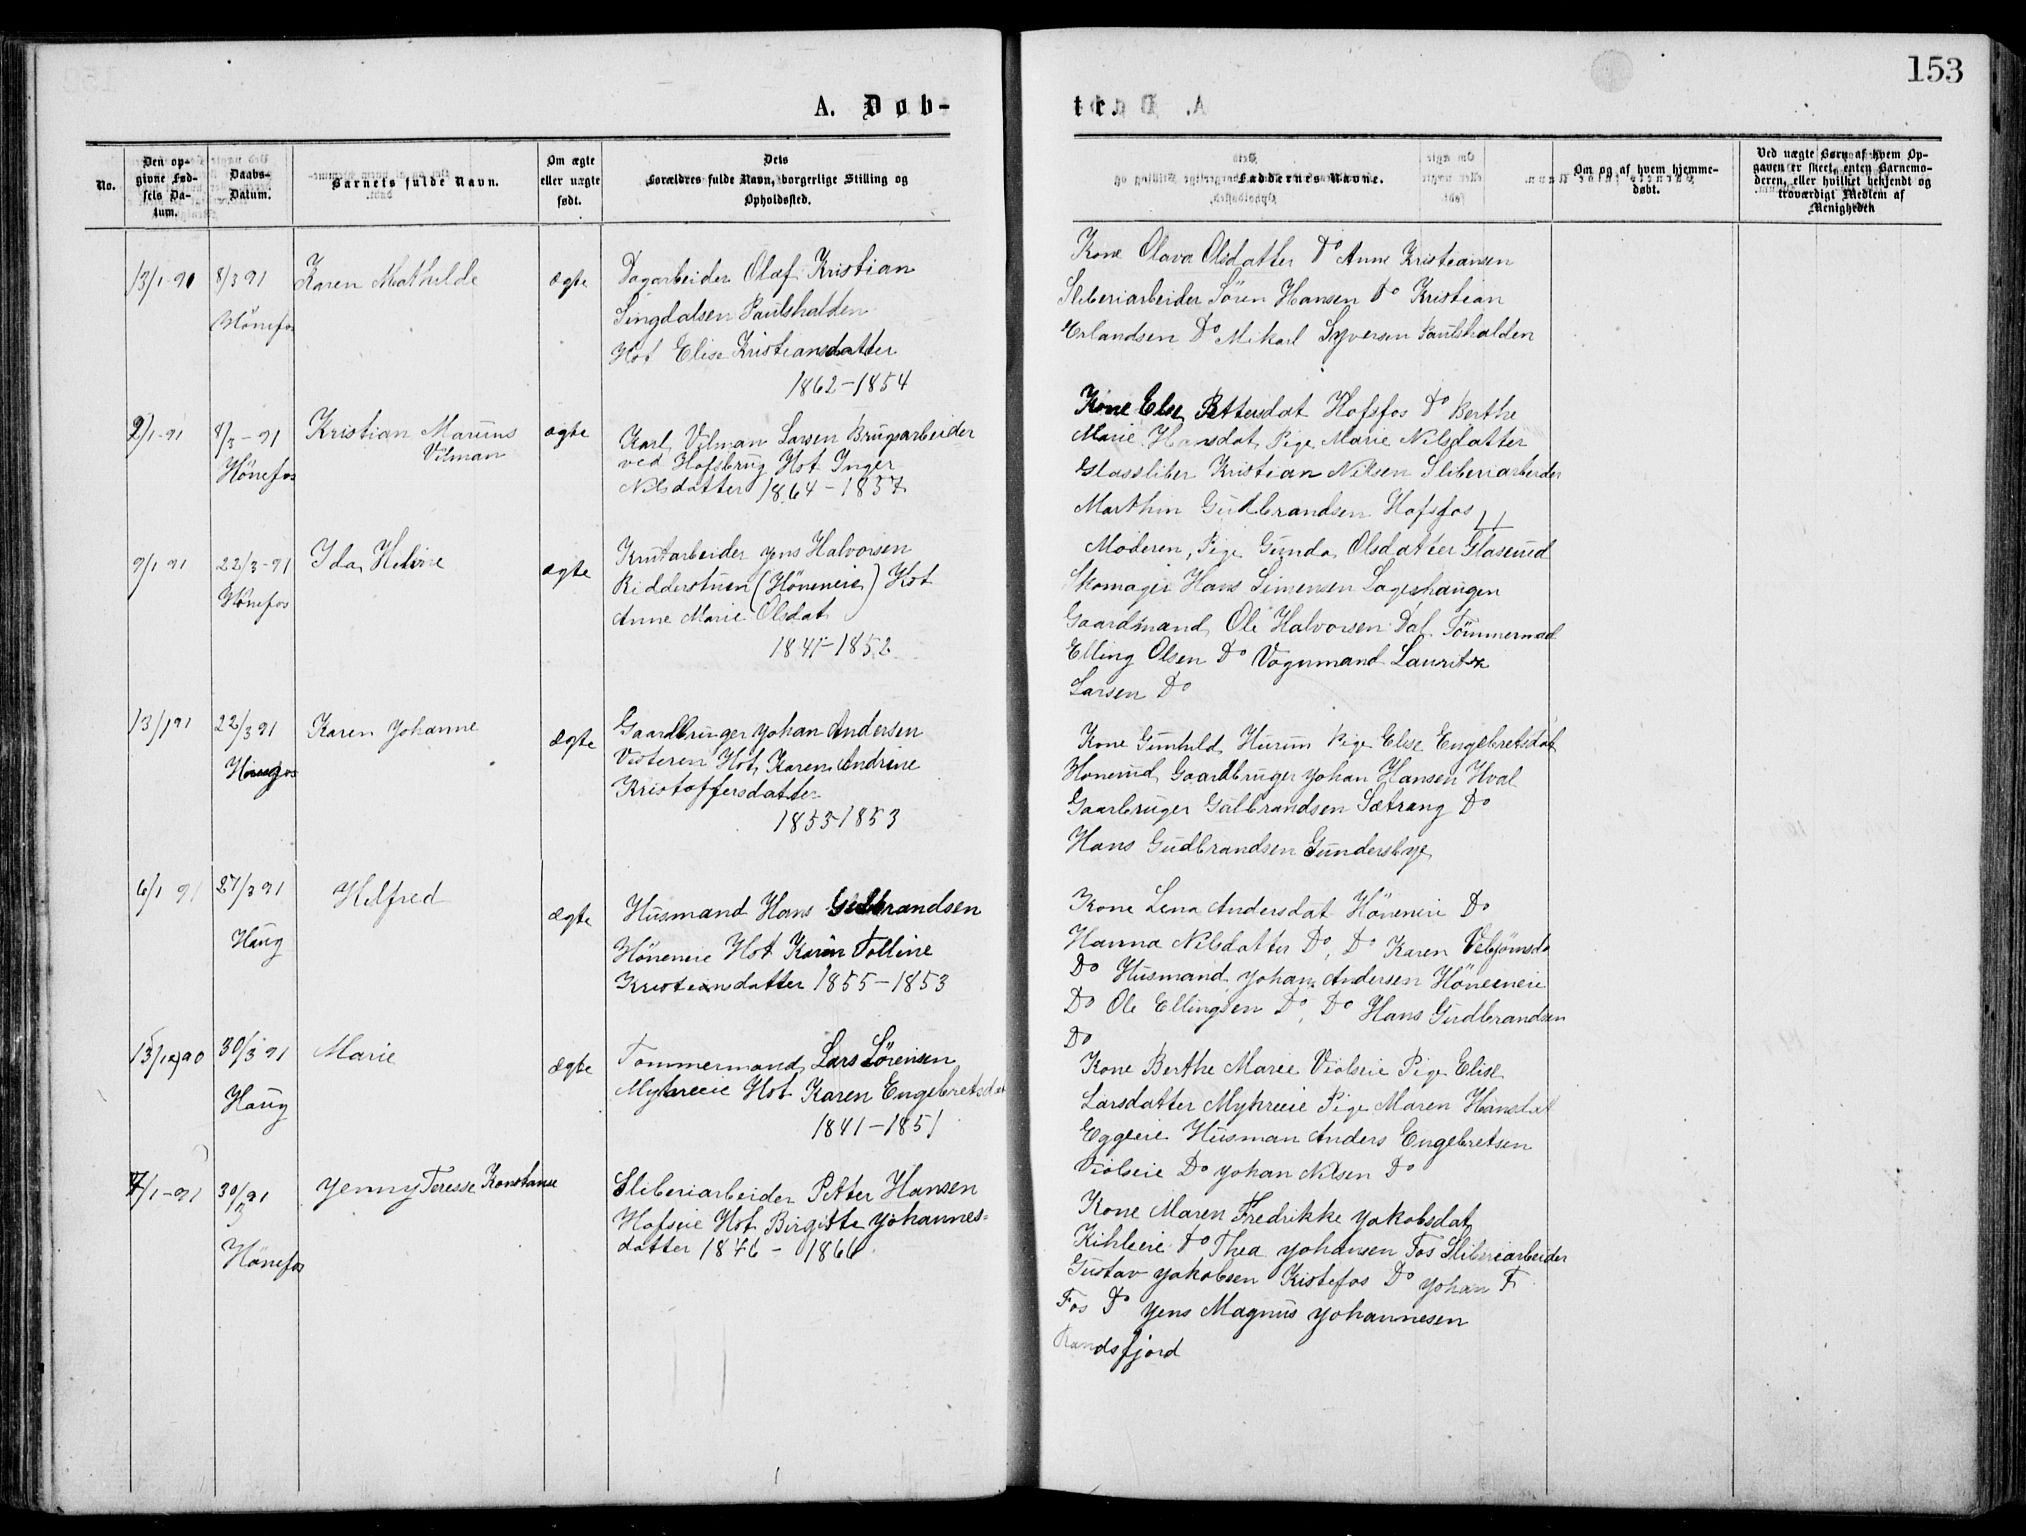 153
A. Døb-
te.
No.
Den op-
givne Fød-
sels Da-
tum.
Daabs-
Datum.
Barnets fulde Navn.
Om ægte
eller uægte
født.
Dets
Forældres fulde Navn, borgerlige Stilling og
Opholdssted.
Faddernes Navne.
Om og af hvem hjemme-
døbt.
Ved uægte Børn af hvem Op-
gaven er skeet, enten Barnemo-
deren, eller hvilket bekjendt og
troværdigt Medlem af
Menigheden
13/1-90
8/3 91
Hönefos
Karen Mathilde
ægte
Dagarbeider Olaf Kristian
Singdalsen Paulshalden
Hst Elise Kristiansdatter
1862-1854
Kone Olava Olsdatter Do Anne Kristiansen
Sliberiarbeider Sören Hansen Do Kristian
Erlandsen Do Mikael Syversen Paulshalden
2/1-91
8/3-91
Hönefos
Kristian Marius
Vilman
ægte
Karl Vilman Larsen Brugsarbeider
ved Hofsbrug Hst Inger
Nilsdatter 1864-1857
Kone Else Pettersdat Hofsfos Do Berthe
Marie Hansdat Pige Marie Nilsdatter
Glassliber Kristian Nilsen Sliberiarbeider
Marthin Gudbrandsen Hofsfos
9/1 91
22/3-91
Hönefos
Ida Heline
ægte
Krutarbeider Jens Halvorsen
Ridderstuen (Höneneie) Hst
Anne Marie Olsdat
1841-1852
Moderen, Pige Gunda Olsdatter Glaserud
Skomager Hans Simensen Lageshaugen
Gaardmand Ole Halvorsen Dal Tömmermad
Elling Olsen Do Vognmand Lauritz
Larsen Do
13/1 91
22/3 91
Karen Johanne
ægte
Gaardbruger Johan Andersen
Vesteren Hst Karen Andrine
Kristoffersdatter
1853-1853
Kone Gunhild Hurum Pige Elise Engebretsdat
Honerud Gaardbruger Johan Hansen Hval
Gaarbruger Gulbrandsen Sætrang Do
Hans Gudbrandsen Gundersbye
6/1 91
27/3 91
Haug
Hilfred
ægte
Husmand Hans Gulbrandsen
Höneneie Hst Karin Tolline
Kristiansdatter 1855-1853
Kone Lena Andersdat Höneneie Do
Hanna Nilsdatter Do, Do Karen Vebjörnsda
Do Husmand Johan Andersen Höneneie
Do Ole Ellingsen Do, Do Hans Gudbrandsen
Do
13/12 90
30/3 91
Haug
Marie
ægte
Tommermand Lars Sörensen
Myhreeie Hst Karen Engebretsdat
1841-1851
Kone Berthe Marie Violseie Pige Elise
Larsdatter Myhreeie Pige Maren Hansdat
Eggeeie Husman Anders Engebretsen
Violseie Do Johan Nilsen Do
7/1-91
30/3 91
Hönefos
Jenny Teresse Konstanse
Sliberiarbeider Petter Hansen
Hofseie Hst Birgitte Johannes-
datter 1846 - 1866
Kone Maren Fredrikke Jakobsdat
Kihleeie Do Thea Johansen Fos Sliberiarbeider
Gustav Jakobsen Kistefos Do Johan F.
Fos Do Jens Magnus Johannesen
Randsfjord